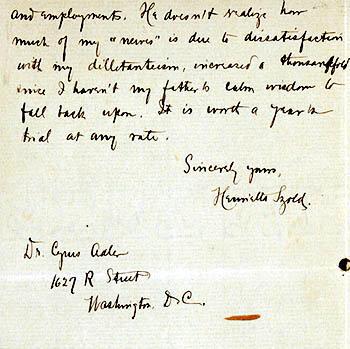 and employments. He doesn't realize how
much of my "nerves" is due to dissatisfaction
with my dilletanteism, increased a thousandfold
since I haven't my father's calm wisdom to
fall back upon. It is worth a year's
trial at any rate.
Sincerely yours,
Henrietta Szold.
Dr. Cyrus Adler
1627 R Street
Washington D.C.